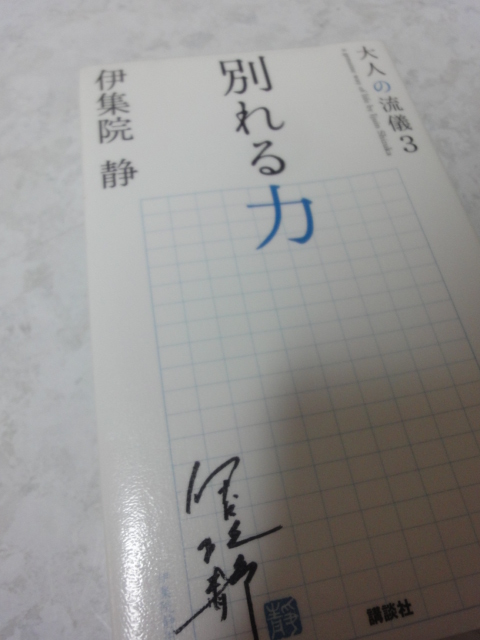 大人の流儀3
別れる力
伊集院 静
伊集院静
静
講談社